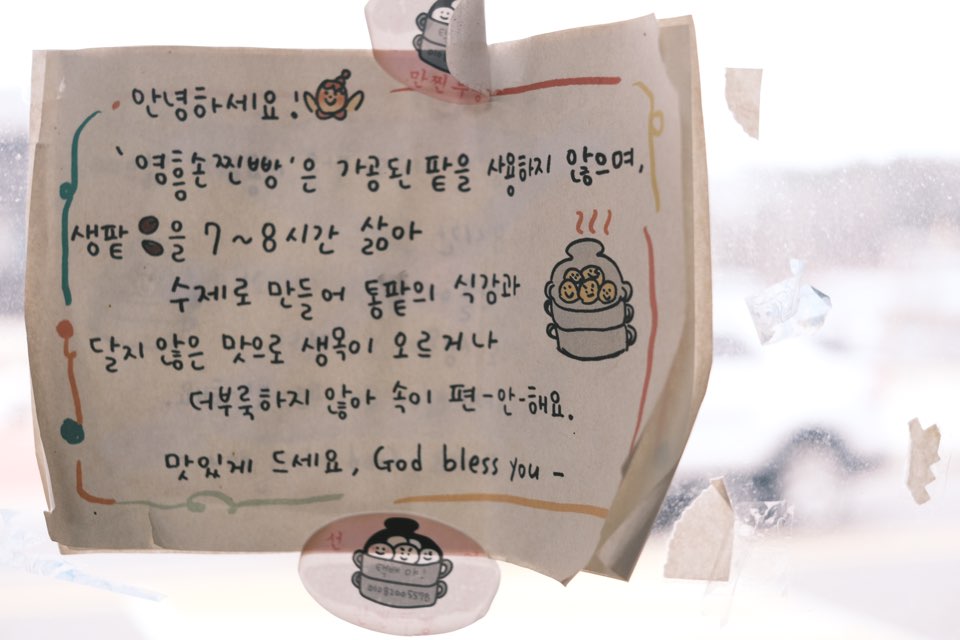 안녕하세요!
'영흥손찐빵'은 가공된 팥을 사용하지 않으며,
생팥을 7~8시간 삶아
수제로 만들어 통팥의 식감과
달지 않은 맛으로 생목이 오르거나
더부룩하지 않아 속이 편-안-해요.
맛있게 드세요, God bless you -